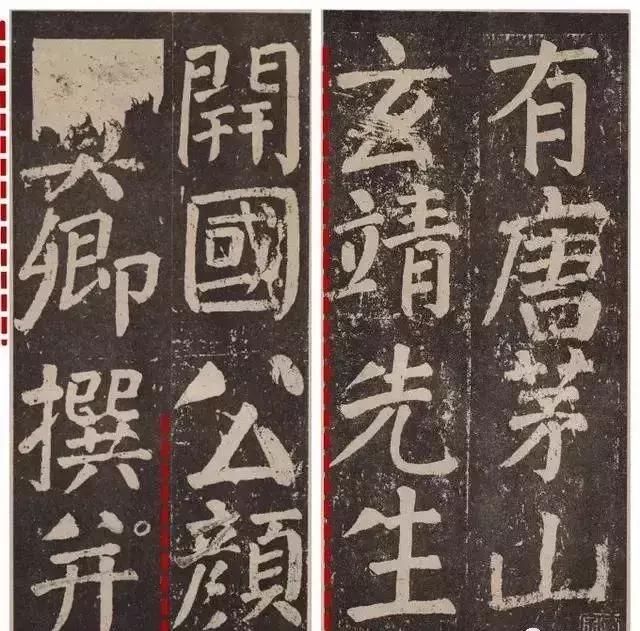 有唐茅山
玄靖先生
開國公顔
卿撰并